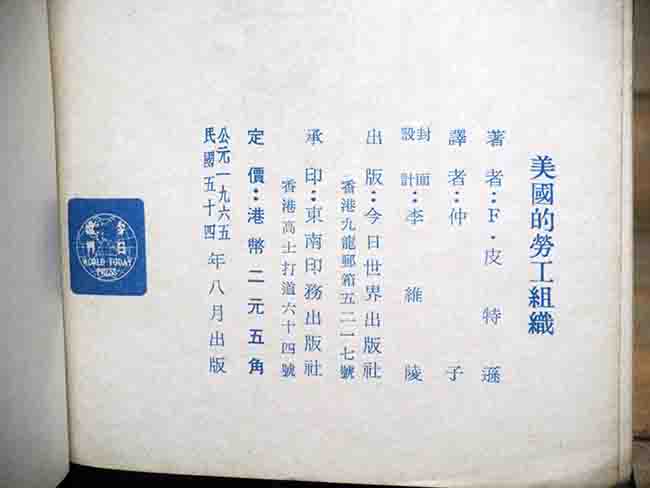 美國的勞工組織
著者：F·皮特遜
譯者：仲子
封面設計：李維陵
出版：今日世界出版社
香港九龍郵箱五二一七號
承印：東南印務出版社
香港高士打道六十四號
定價：港幣二元五角
公元一九六五
民國五十四
年八月出版
今日世界
WORLD TODAY
PRESS